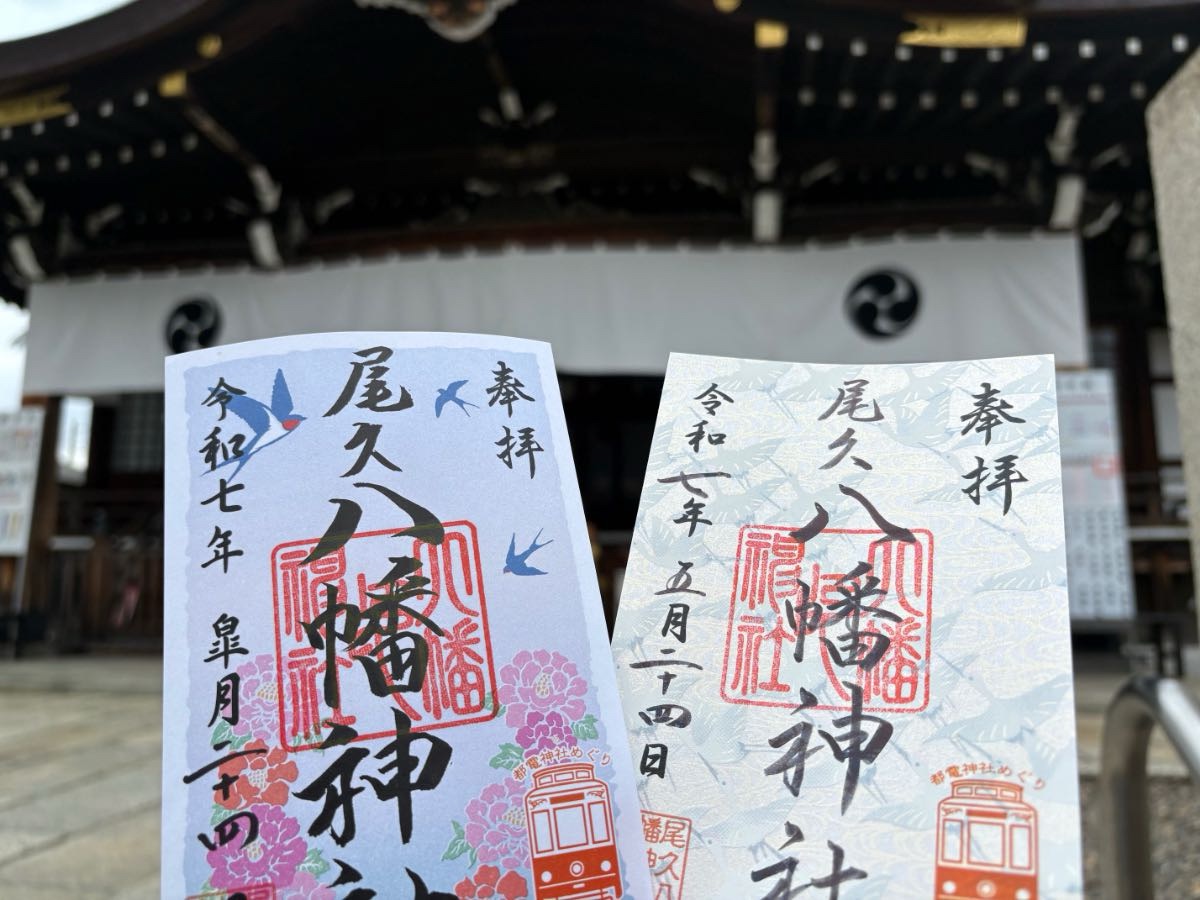 奉拝
尾久八幡神社
令和七年 皐月二十四
都電神社めぐり
奉拝
尾久八幡神社
令和七年 五月二十四日
都電神社めぐり